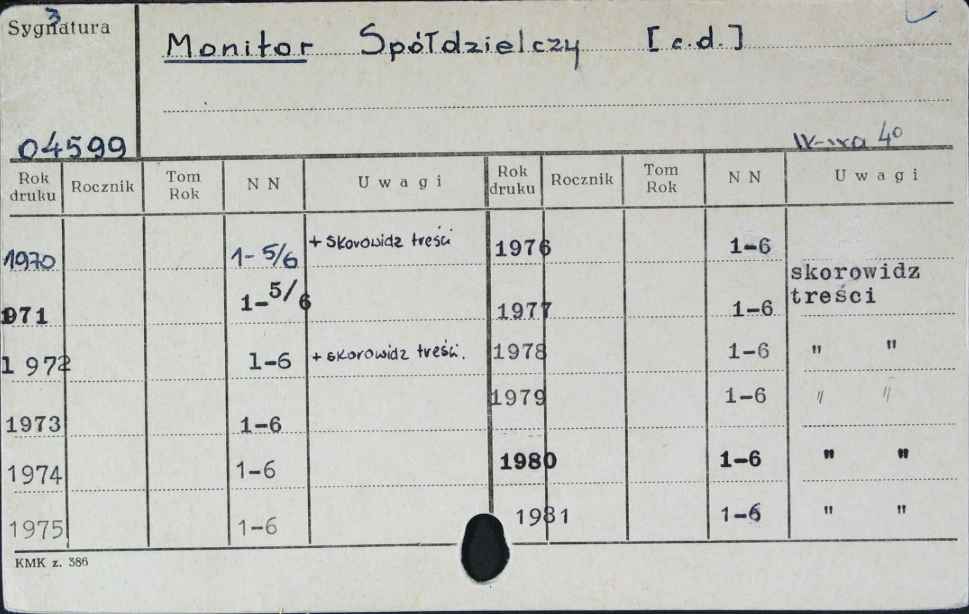 3
Sygnatura
Monitor Spółdzielczy [c.d.]
04599
W-wa 4º
Rok druku Rocznik Tom Rok N N Uwagi Rok druku Rocznik Tom Rok N N Uwagi
1970 1-5/6 + skorowidz treści 1976 1-6
skorowidz
1971 1-5/6 1977 1-6 treści
1972 1-6 + skorowidz treści. 1978 1-6 " "
1973 1-6 1979 1-6 " "
1974 1-6 1980 1-6 " "
1975 1-6 1981 1-6 " "
KMK z. 386